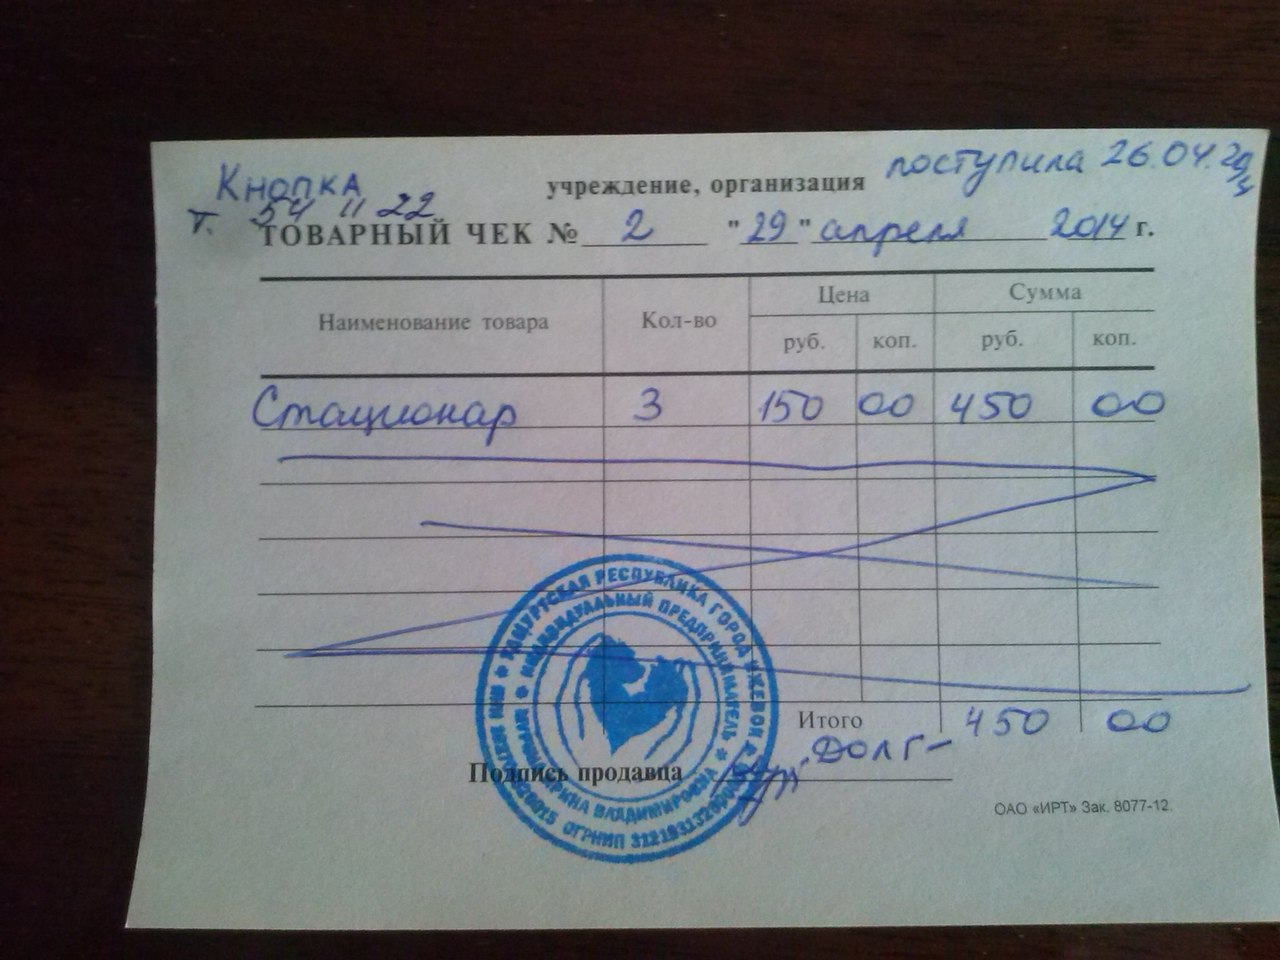 Кнопка
поступила 26.04.2014
учреждение, организация
т. 54 11 22
ТОВАРНЫЙ ЧЕК № 2 "29" апреля 2014 г.
Наименование товара Кол-во Цена Сумма
руб. коп. руб. коп.
Стационар 3 150 00 450 00
Итого 450 00
Долг-
Подпись продавца
ОАО «ИРТ» Зак. 8077-12.
УДМУРТСКАЯ РЕСПУБЛИКА ГОРОД ИЖЕВСК
ИНДИВИДУАЛЬНЫЙ ПРЕДПРИНИМАТЕЛЬ
ИРИНА ВЛАДИМИРОВНА
ОГРНИП